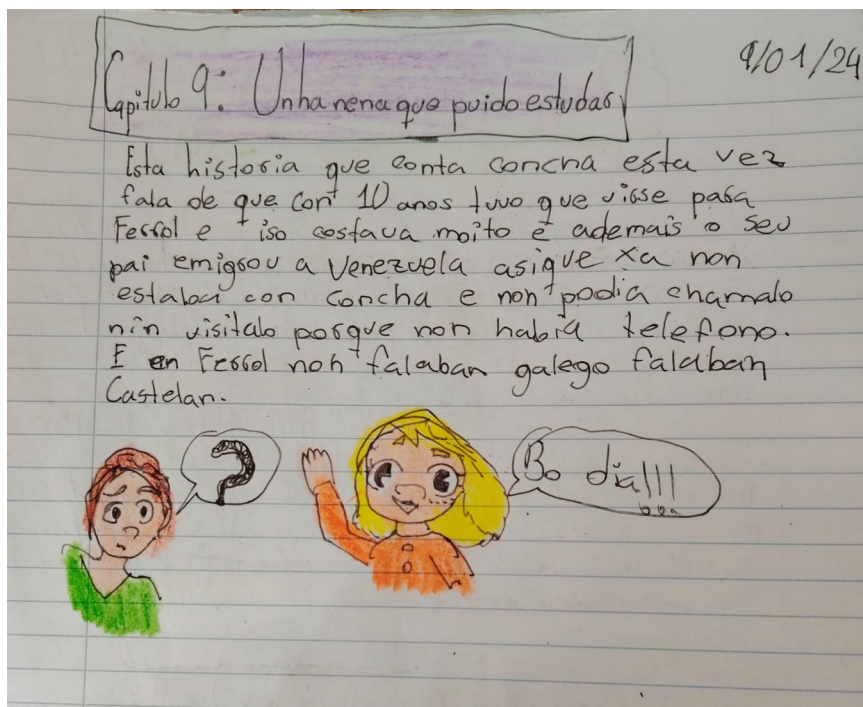 9/01/24
Capitulo 9: Unha nena que puido estudar
Esta historia que conta concha esta vez
fala de que con 10 anos tuvo que virse para
Ferrol e iso costaua moito e ademais o seu
pai emigrou a Venezuela asique xa non
estaba con Concha e non podia chamalo
nin visitalo porque non habia telefono.
E en Ferrol non falaban galego falaban
Castelan.
?
Bo dia!!!